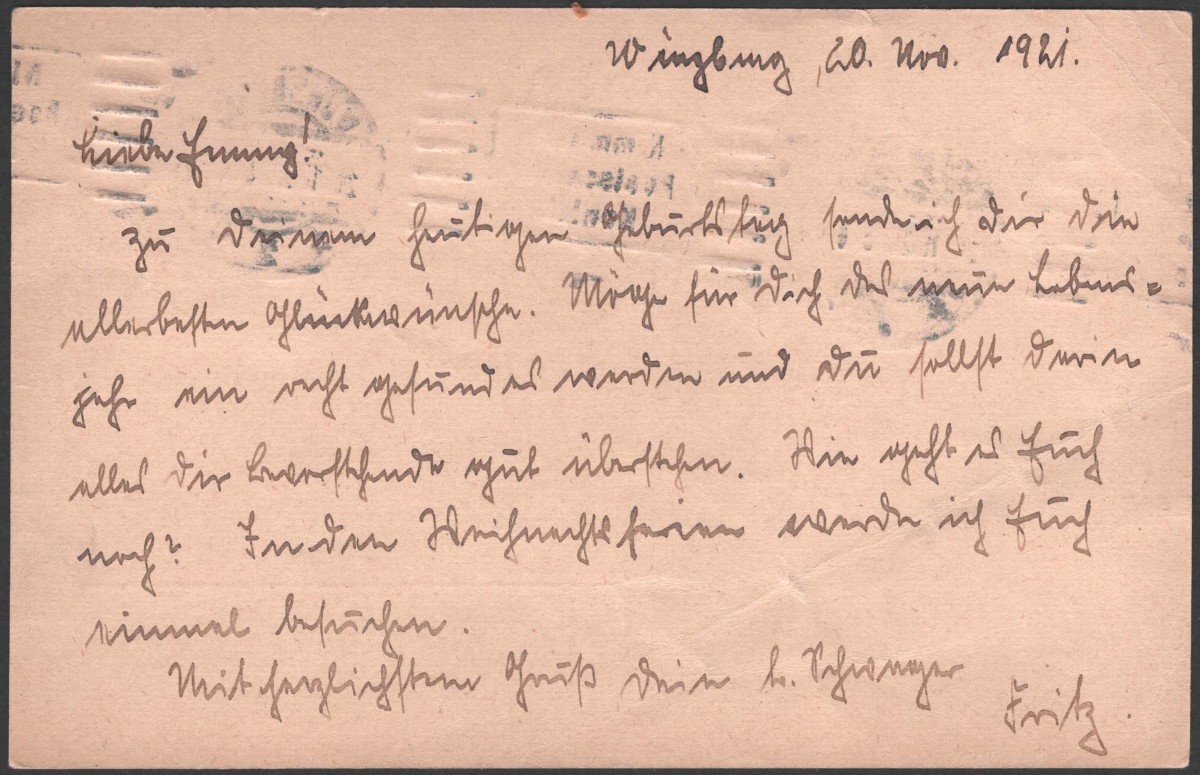 Würzburg, 20. Nov. 1921.
Liebe Emmy!
Zu deinem heutigen Geburtstag sende ich dir die
allerbesten Glückwünsche. Möge für dich das neue Lebens=
jahr ein recht gesundes werden und du sollst darin
alles dir Bevorstehende gut überstehen. Wie geht es Euch
noch? In den Weihnachtsferien werde ich Euch
einmal besuchen.
Mit herzlichstem Gruß dein l. Schwager
Fritz.